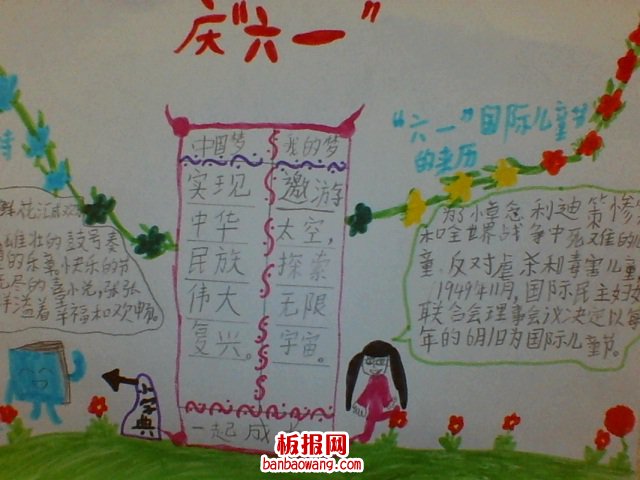 庆“六一”
“六一”国际儿童节
的来历
中国梦
实现
中华
民族
伟大
复兴。
我的梦
遨游
太空，
探索
无限
宇宙。
一起成
雄壮的鼓号奏
的乐章，快乐的节
洋溢着幸福和欢畅。
为了悼念利迪策惨
和全世界战争中死难的
童、反对虐杀和毒害儿童
1949年11月，国际民主妇
联合会理事会议决定以每
年的6月1日为国际儿童节。
典
板报网
banbaowang.com